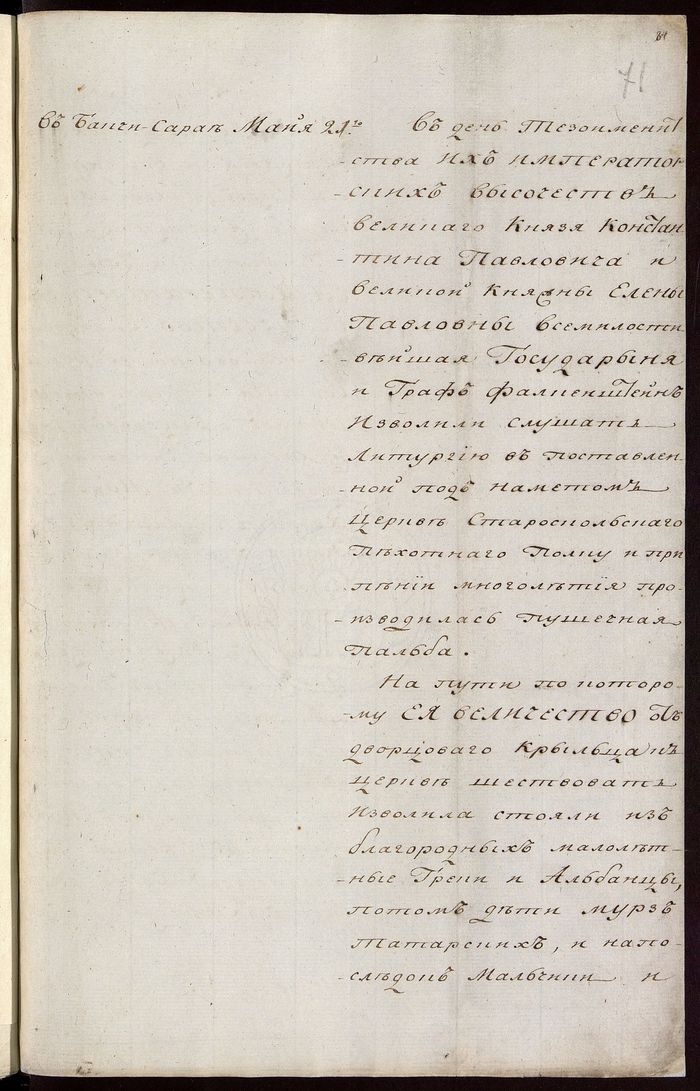 81
71
Въ Бакчи-Сараѣ Маія 21го
Въ день Тезоименит-
-ства ИХЪ ИМПЕРАТОР-
-СКИХЪ ВЫСОЧЕСТВЪ
великаго Князя Констан-
-тина Павловича и
великой Княжны Елены
Павловны всемилости-
-вѣйшая Государыня
и Графъ Фалкенштейнъ
Изволили слушать
Литургію въ поставлен-
-ной подъ наметомъ
Церквѣ Староскольскаго
Пѣхотнаго Полку и при
пѣніи многолѣтія про-
-изводилась пушечная
пальба.
На пути по которо-
-му ЕЯ ВЕЛИЧЕСТВО отъ
дворцоваго крыльца къ
церквѣ шествовать
Изволила стояли изъ
благородныхъ малолѣт-
-ные Греки и Альбанцы,
потомъ дѣти мурзъ
татарскихъ, и напо-
-слѣдокъ Мальчики и